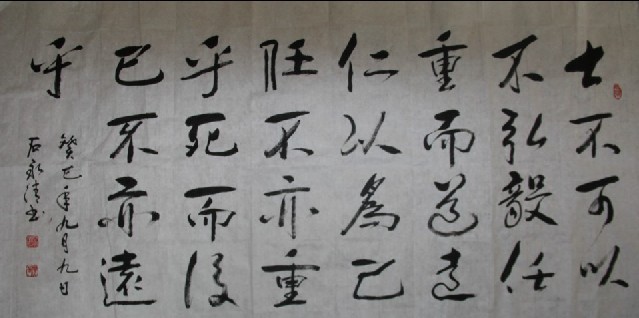 士不可以
不弘毅任
重而道遠
仁以為己
任不亦重
乎死而後
已不亦遠
乎
癸巳年九月九日
石永清书